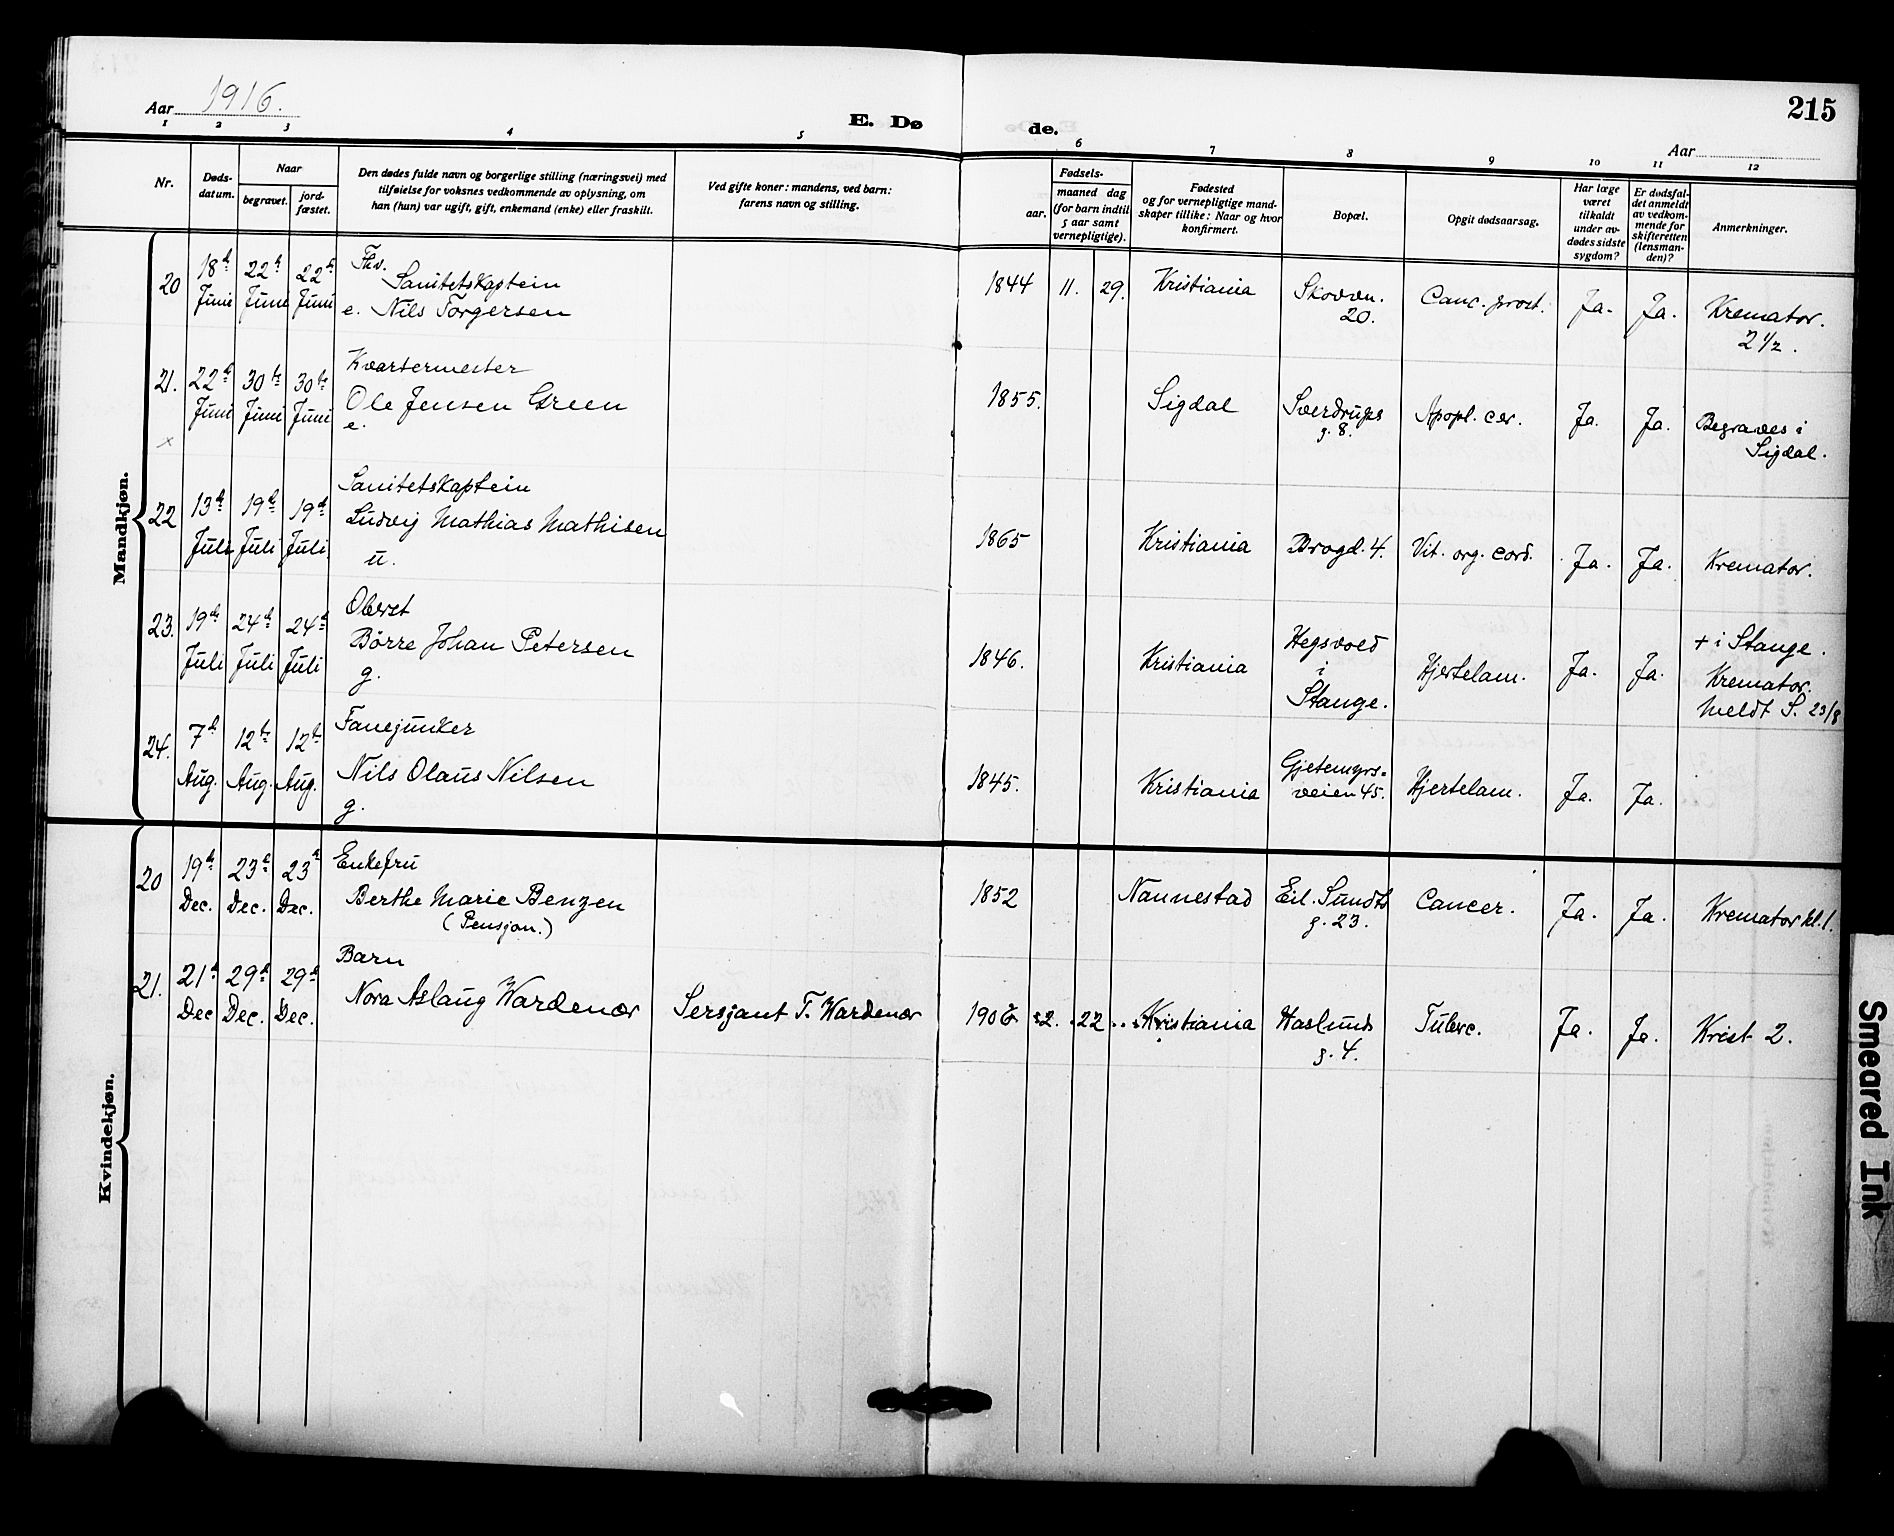 Aar 1916.
E. Dø
de.
215
Aar
1 2 3 4 5 6 7 8 9 10 11 12
Nr.
Døds-
datum.
Naar
begravet.
jord-
fæstet.
Den dødes fulde navn og borgerlige stilling (næringsvei) med
tilføielse for voksnes vedkommende av oplysning, om
han (hun) var ugift, gift, enkemand (enke) eller fraskilt.
Ved gifte koner: mandens, ved barn:
farens navn og stilling.
Fødsels-
aar.
maaned dag
(for barn indtil
5 aar samt
vernepligtige).
Fødested
og for vernepligtige mand-
skaper tillike: Naar og hvor
konfirmert.
Bopæl.
Opgit dødsaarsag.
Har læge
været
tilkaldt
under av-
dødes sidste
sygdom?
Er dødsfal-
det anmeldt
av vedkom-
mende for
skifteretten
(lensman-
den)?
Anmerkninger.
Mandkjøn.
20 18d Juni 22d Juni 22d Juni
Fhv.
Sanitetskaptein
e. Nils Torgersen
1844 11. 29. Kristiania
Skovvn.
20.
Canc. prost. Ja. Ja.
Kremator.
2 1/2.
21. 22d Juni 30te Juni 30te Juni
Kvartermester
Ole Jensen Green
e.
1855. Sigdal
Sverdrups
g. 8.
Apopl. cer. Ja. Ja.
Begraves i
Sigdal.
x
22 13d Juli 19d Juli 19d Juli
Sanitetskaptein
Ludvig Mathias Mathisen
u.
1865 Kristiania Brogd. 4. Vit. org. cord. Ja. Ja. Kremator.
23. 19d Juli 24d Juli 24d Juli
Oberst
Börre Johan Petersen
g.
1846. Kristiania
Hegsvold
i
Stange.
Hjertelam. Ja. Ja.
+ i Stange.
Kremator.
Meldt S. 23/8
24. 7d Aug. 12te Aug. 12te Aug.
Fanejunker
Nils Olaus Nilsen
g.
1845. Kristiania
Gjetemyrs-
veien 45.
Hjertelam. Ja. Ja.
Kvindekjøn.
20 19d Dec. 23d Dec. 23d Dec.
Enkefru
Berthe Marie Benzen
(Pensjon.)
1852 Nannestad
Eil. Sundts
g. 23.
Cancer. Ja. Ja. Kremator kl. 1.
21. 21d Dec 29d Dec. 29d Dec.
Barn
Nora Aslaug Wardenær
Sersjant T. Wardenær
2. 22 Kristiania
Haslunds
g. 4.
Tuberc. Ja. Ja. Krist 2.
Smeared Ink